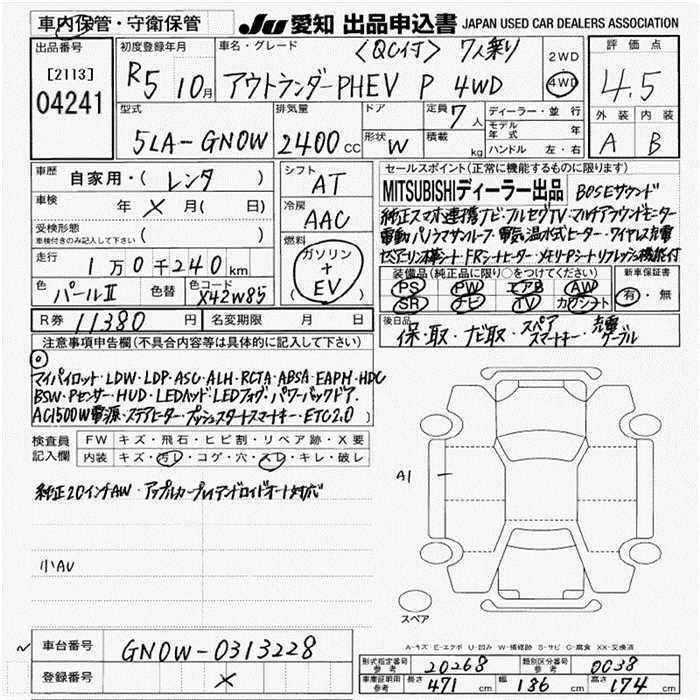 車内保管・守衛保管
JU 愛知 出品申込書 JAPAN USED CAR DEALERS ASSOCIATION
出品番号
[2113]
04241
初度登録年月
R5 10月
車名・グレード
〈QC1付〉 7人乗り
アウトランダーPHEV P 4WD
2WD
4WD
評価点
4.5
外装 内装
A B
型式
5LA-GN0W
排気量
2400 CC
ドア
形状 W
定員 7人
積載 kg
ディーラー・並行
モデル年式 年
ハンドル 左・右
車歴
自家用・( レンタ )
車検
年 × 月( 日)
受検形態
車検付きのみ記入して下さい ( )
走行
1万0千240km
色 パールⅡ
色替
色コード X42W85
シフト
AT
冷房
AAC
燃料
ガソリン
+
EV
セールスポイント(正常に機能するものに限ります)
MITSUBISHIディーラー出品 BOSEサウンド
純正スマホ連携ナビ・フルセグTV・マルチアラウンドモニター
電動パノラマサンルーフ・電気温水式ヒーター・ワイヤレス充電
セミアリン本革シート・FRシートヒーター・メモリーPシートリフレッシュ機能付
装備品(純正品に限り○をつけてください)
PS PW エアB AW
SR ナビ TV カワシート
新車保証書
有・無
R券 11380円
名変期限 月 日
後日品
保・取・ナビ取・スペアスマートキー・充電ケーブル
注意事項申告欄(不具合内容等は具体的に記入して下さい)
マイパイロット・LDW・LDP・ASC・ALH・RCTA・ABSA・EAPM・HDC
BSW・Pセンサー・HUD・LEDヘッド・LEDフォグ・パワーバックドア
AC1500W電源・ステアヒーター・プッシュスタートスマートキー・ETC2.0
検査員記入欄
FW キズ・飛石・ヒビ割・リペア跡・X要
内装 キズ・汚レ・コゲ・穴・スレ・キレ・破レ
純正20インチAW・アップルカープレイアンドロイドオート対応
小AU
A1
スペア
A-キズ E-エクボ U-凹み W-補修跡 S-サビ C-腐食 XX-交換済
車台番号
GN0W-0313228
登録番号
×
形式指定番号
参考 20268
類別区分番号
参考 0038
車庫証明用
参考 長さ 471cm 幅 186cm 高さ 174cm